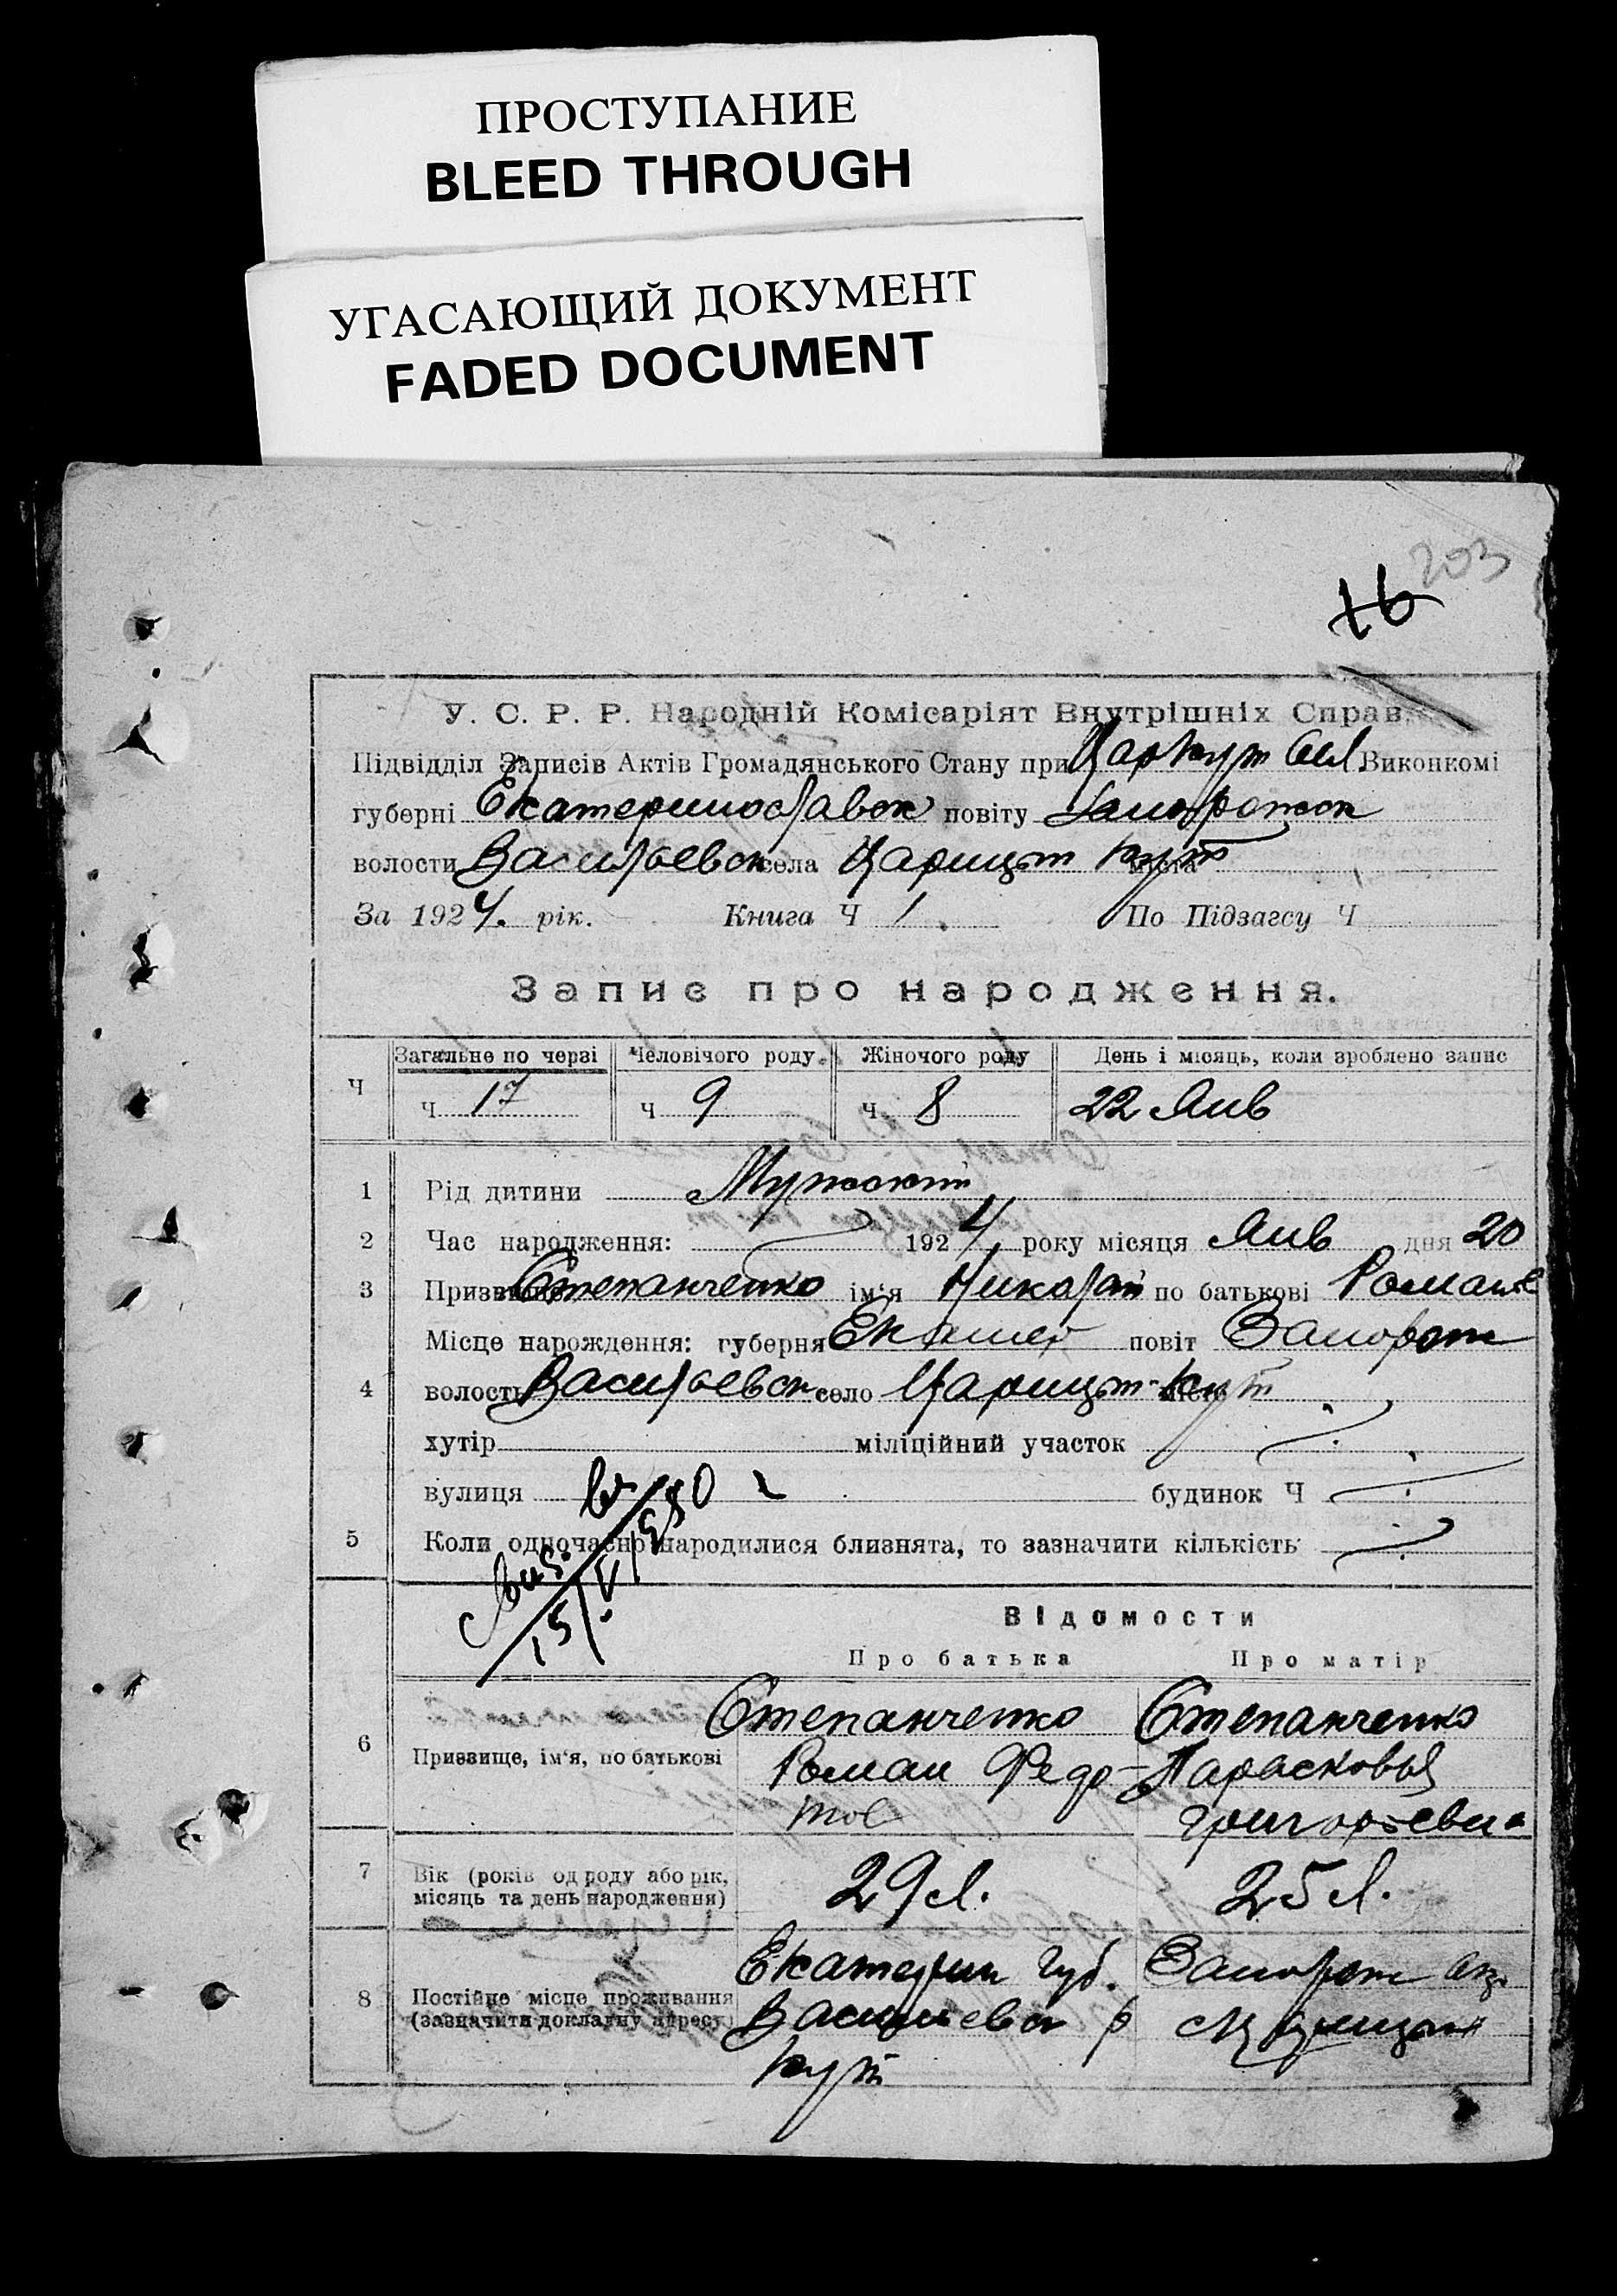 ПРОСТУПАНИЕ
BLEED THROUGH
УГАСАЮЩИЙ ДОКУМЕНТ
FADED DOCUMENT
203
16
У. С. Р. Р. Народній Комісаріят Внутрішніх Справ.
Підвідділ Записів Актів Громадянського Стану при Царкут Виконкомі
губерні Екатеринославск повіту Запорожск
волости Васильевск села Царицыт Кут міста
За 1924. рік. Книга Ч 1. По Підзагсу Ч
Запис про народження.
Загальне по черзі Человічого роду Жіночого роду День і місяць, коли зроблено запис
Ч Ч 17 Ч 9 Ч 8 22 Янв
1 Рід дитини Мужской
2 Час народження: 1924 року місяця Янв дня 20
3 Призвище Степанченко ім'я Николай по батькові Роман
Місце народження: губерня повіт Запорож
4 волость Васильевск село Царицыт-Кут місто
хутір міліційний участок
вулиця будинок Ч
5 Коли одночасно народилися близнята, то зазначити кількість
15/VI
Відомости
Про батька Про матір
6 Призвище, ім'я, по батькові
Степанченко Степанченко
Роман Федо- Парасковья
тов Григорьевна
7 Вік (років од роду або рік, місяць та день народження) 29 л. 25 л.
8 Постійне місце проживання (зазначити докладну адресу)
Екатерин губ. Запорож
Васильевск р
Кут